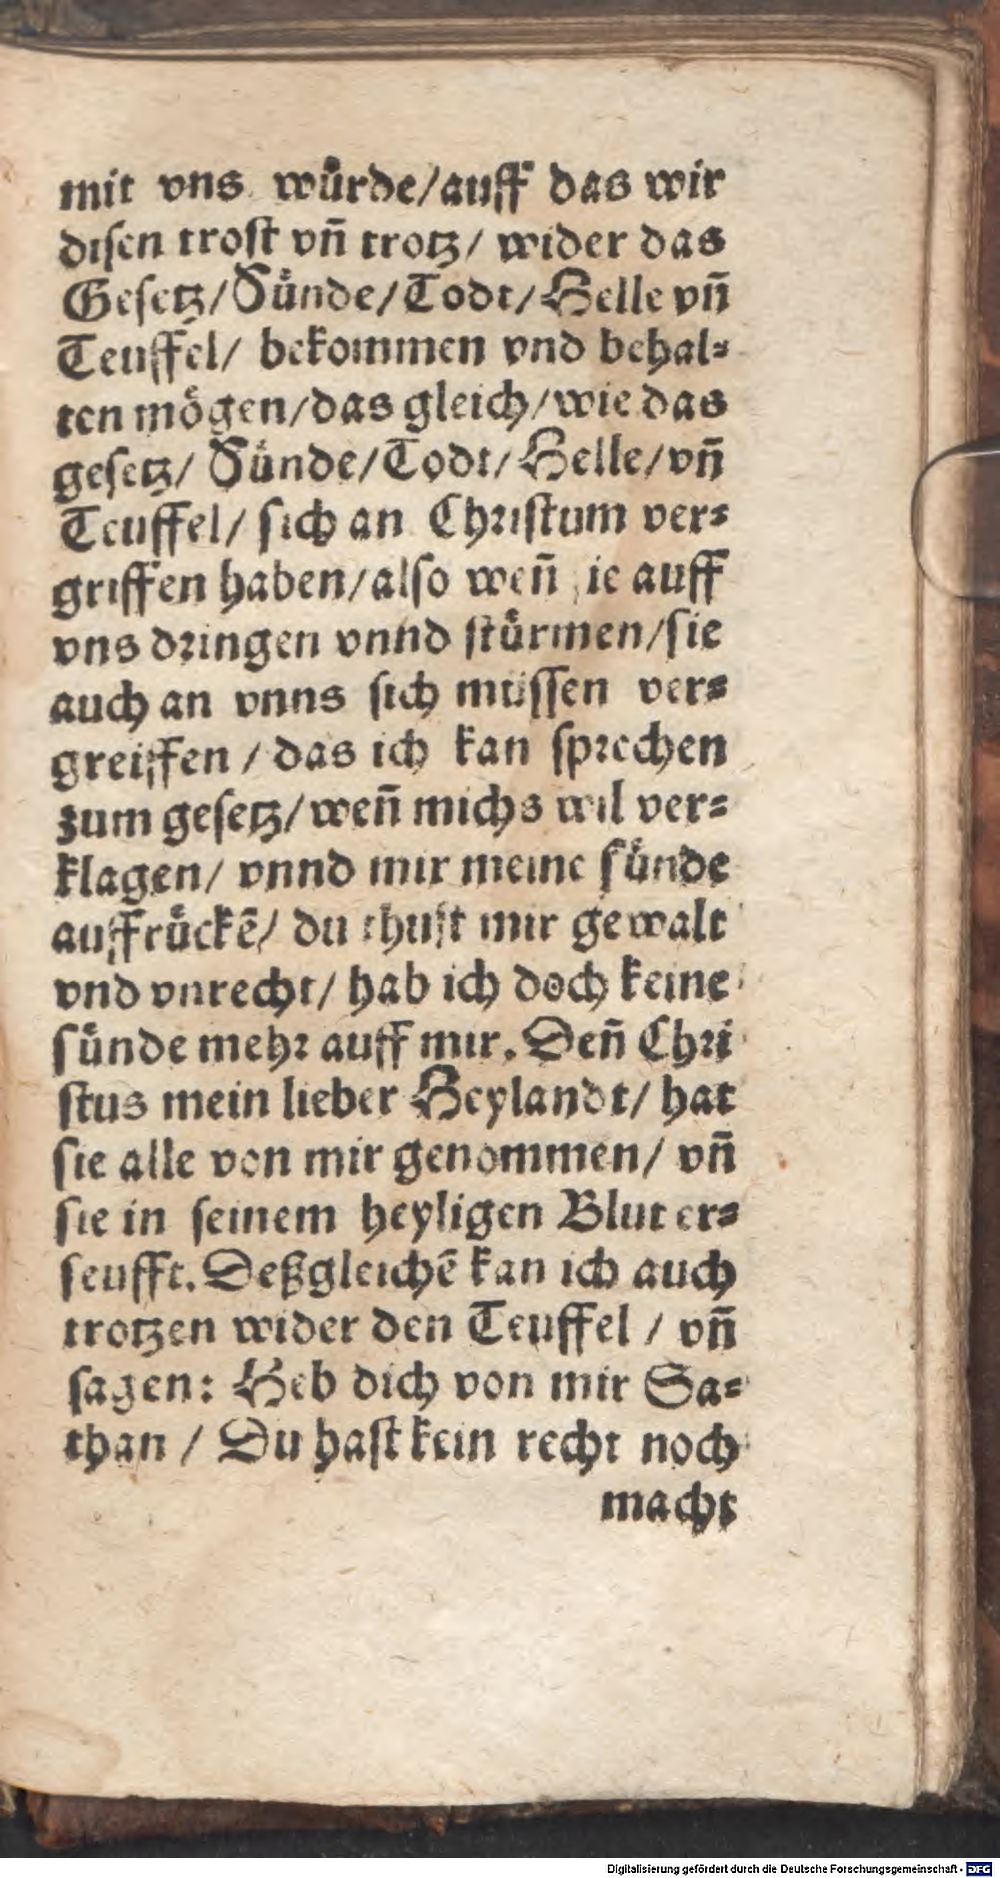 mit vns wuͤrde/auff das wir
disen trost vñ trotz/ wider das
Gesetz/Suͤnde/Todt/Helle vñ
Teuffel/ bekommen vnd behal⸗
ten moͤgen/das gleich/wie das
gesetz/ Suͤnde/Todt/Helle/vñ
Teuffel/ sich an Christum ver⸗
griffen haben/also weñ sie auff
vns dringen vnnd stuͤrmen/sie
auch an vnns sich muͤssen ver⸗
greiffen / das ich kan sprechen
zum gesetz/weñ michs wil ver⸗
klagen/ vnnd mir meine suͤnde
auffruͤckẽ/ du thust mir gewalt
vnd vnrecht/ hab ich doch keine
suͤnde mehr auff mir. Deñ Chri
stus mein lieber Heylandt/ hat
sie alle von mir genommen/ vñ
sie in seinem heyligen Blut er⸗
seufft. Deßgleichẽ kan ich auch
trotzen wider den Teuffel / vñ
sagen: Heb dich von mir Sa⸗
than / Du hast kein recht noch
macht
Digitalisierung gefördert durch die Deutsche Forschungsgemeinschaft - DFG